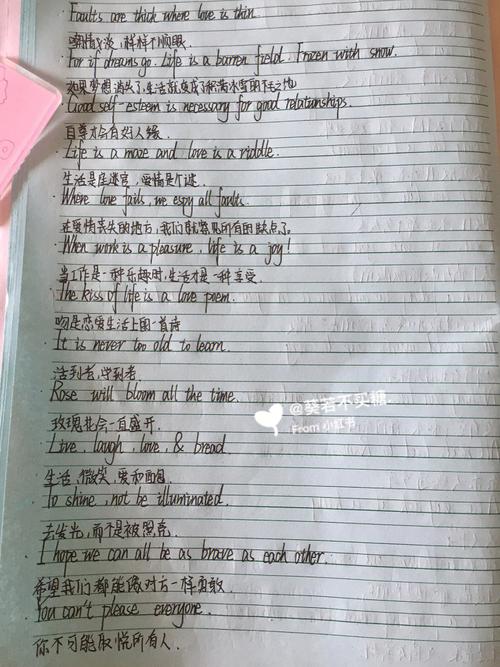 · Faults are thick where love is thin.
情浅, 样样不顺眼.
· For if dreams go. Life is a barren field. Frozen with snow.
如果梦想消失了,生活就变成了积满冰雪的不毛之地
· Good self-esteem is necessary for good relationships.
自尊才会有好人缘
· Life is a maze and love is a riddle.
生活是座迷宫, 爱情是个谜.
· Where love fails, we espy all faults.
在爱情丧失的地方,我们就看见所有的缺点了.
· When work is a pleasure, life is a joy!
当工作是一种乐趣时,生活才是一种享受.
· The kiss of life is a love poem.
吻是恋爱生活上的一首诗
· It is never too old to learn.
活到老,学到老.
· Rose will bloom all the time.
玫瑰花会一直盛开.
· Live, laugh, love, & bread.
生活,微笑,爱和面包.
· To shine, not be illuminated.
去发光,而不是被照亮.
· I hope we can all be as brave as each other.
希望我们都能像对方一样勇敢.
· You can't please everyone.
你不可能取悦所有人.
@葵若不买糖
From 小红书